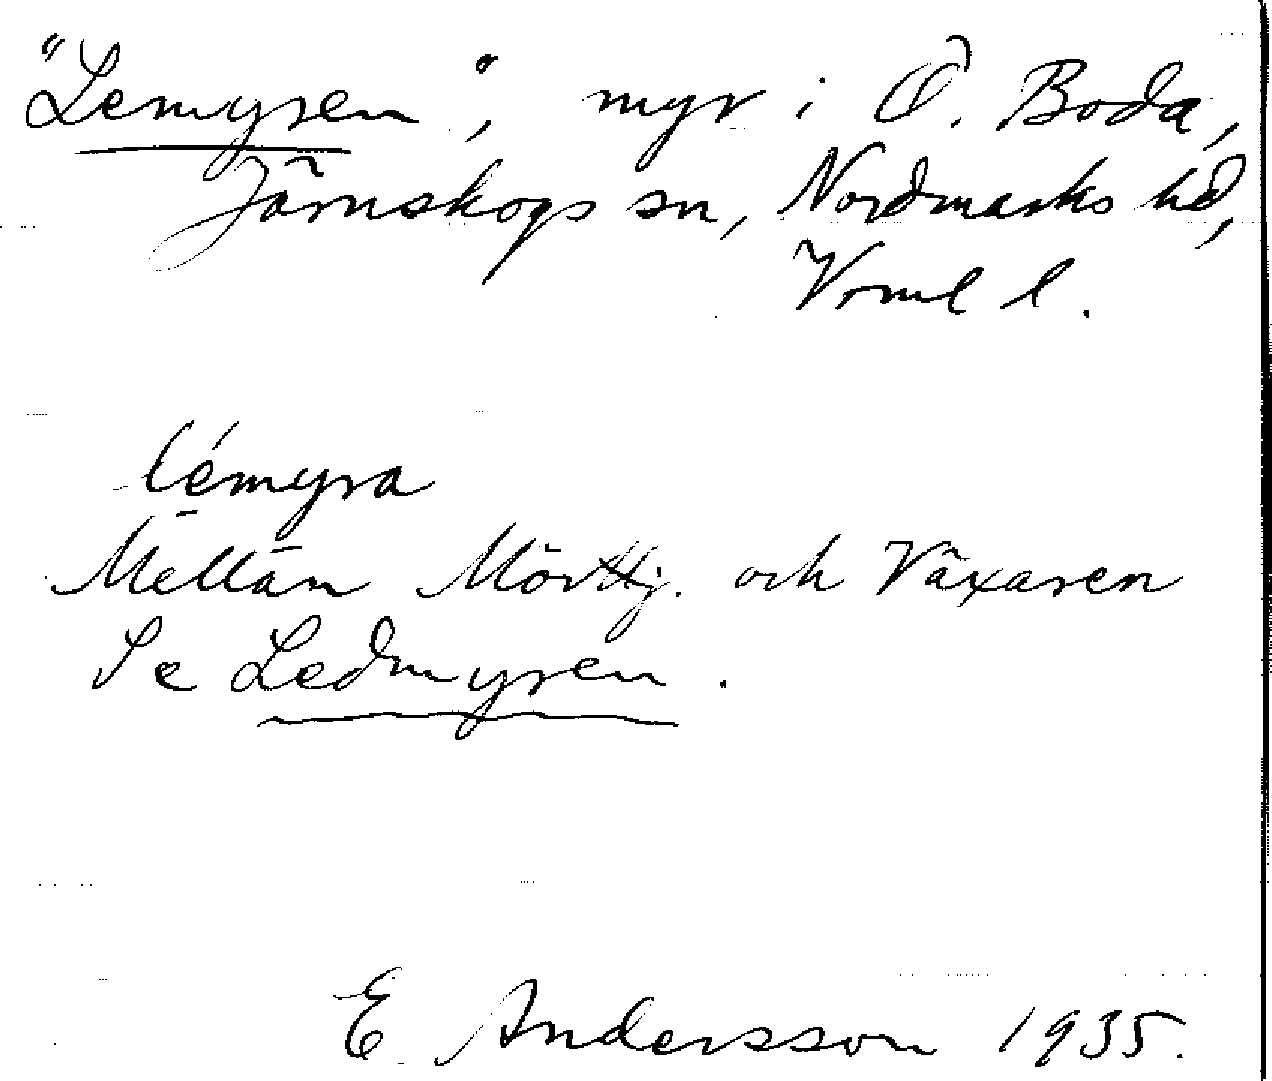 "Lemyren", myr i Ö. Boda,
Järnskogs sn, Nordmarks hd,
Vrml l.
lémyra
Mellan Mörttj. och Växaren
Se Ledmyren.
E Andersson 1935.